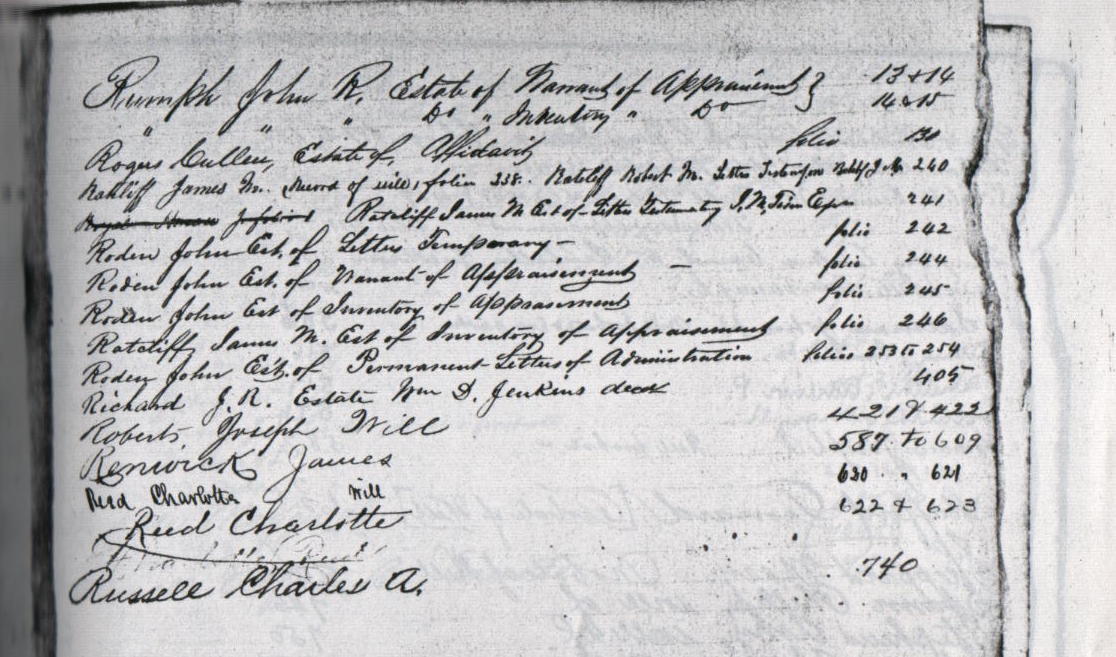 Rumph John R. Estate of Warrant of Appraisement } 13 & 14
" " " Do " Inventory " Do 14 & 15
Rogers Cullen, Estate of, Affidavit folio 130
Ratcliff James M. (Record of will, folio 238. Ratcliff Robert M. Letters 240
Ratcliff James M Est of Letters Testamentary J. M. 241
Roden John Est. of Letters Temporary - folio 242
Roden John Est. of Warrant of Appraisement - folio 244
Roden John Est of Inventory of Appraisment folio 245
Ratcliff, James M. Est of Inventory of Appraisement folio 246
Roden John Est. of Permanent Letters of Administration folios 253 to 254
Richard J. R. Estate Wm D. Jenkins decd 405
Roberts, Joseph Will 421 & 422
Renwick James 587 to 609
Reid Charlotte Will 620 " 621
Reed Charlotte 622 & 623
Russell Charles A. 740